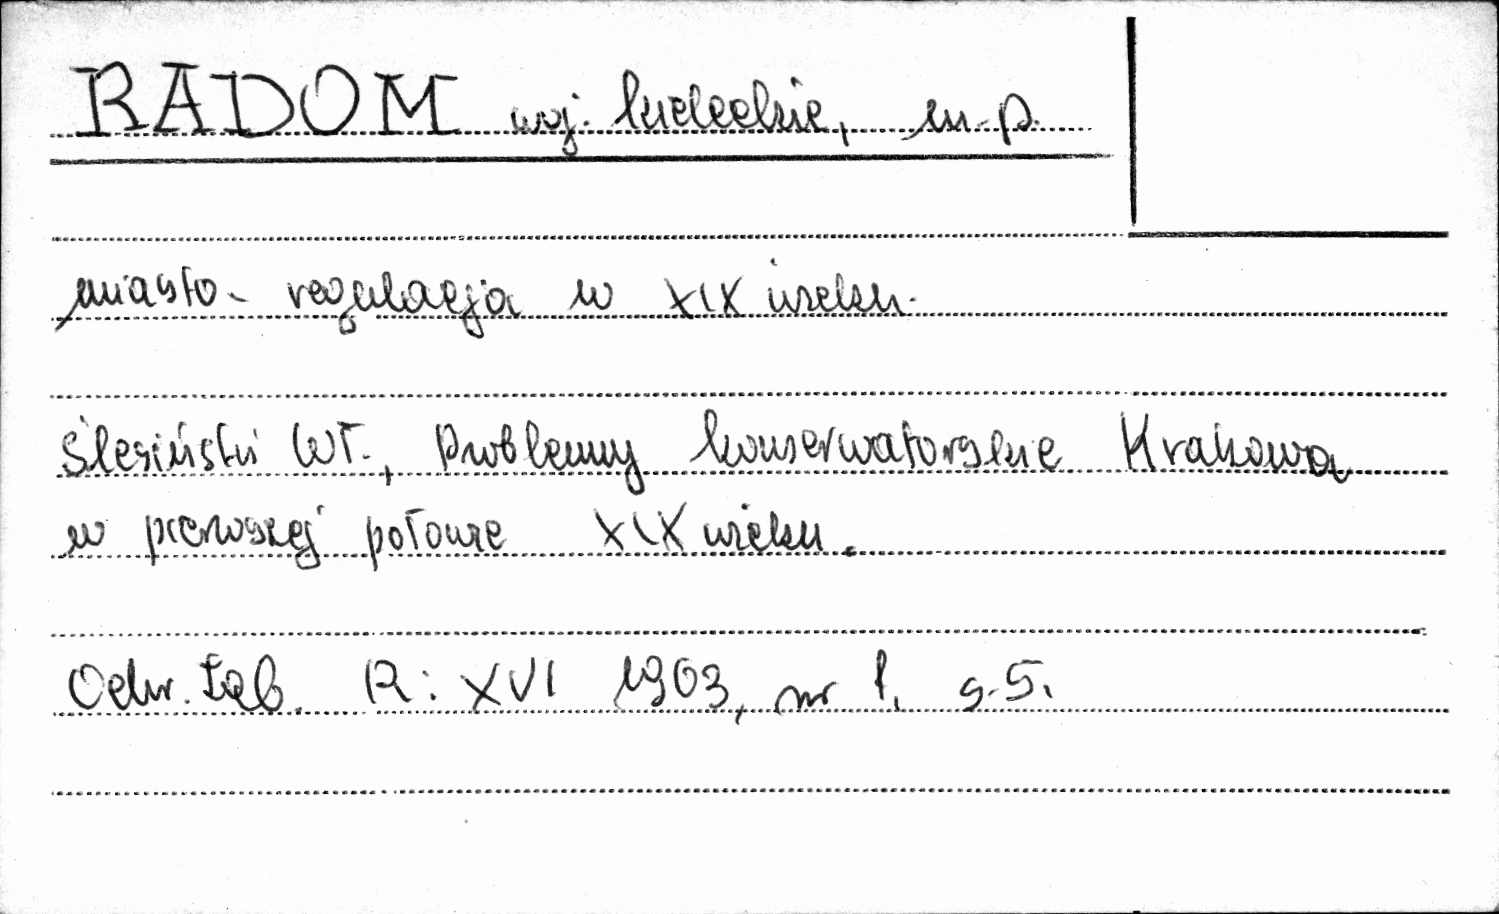 RADOM woj. kieleckie, m.p.
miasto - regulacja w XIX wieku.
Ślesiński Wł., Problemy konserwatorskie Krakowa
w pierwszej połowie XIX wieku.
Ochr. Zab. R: XVI 1963, nr 1, s. 5.